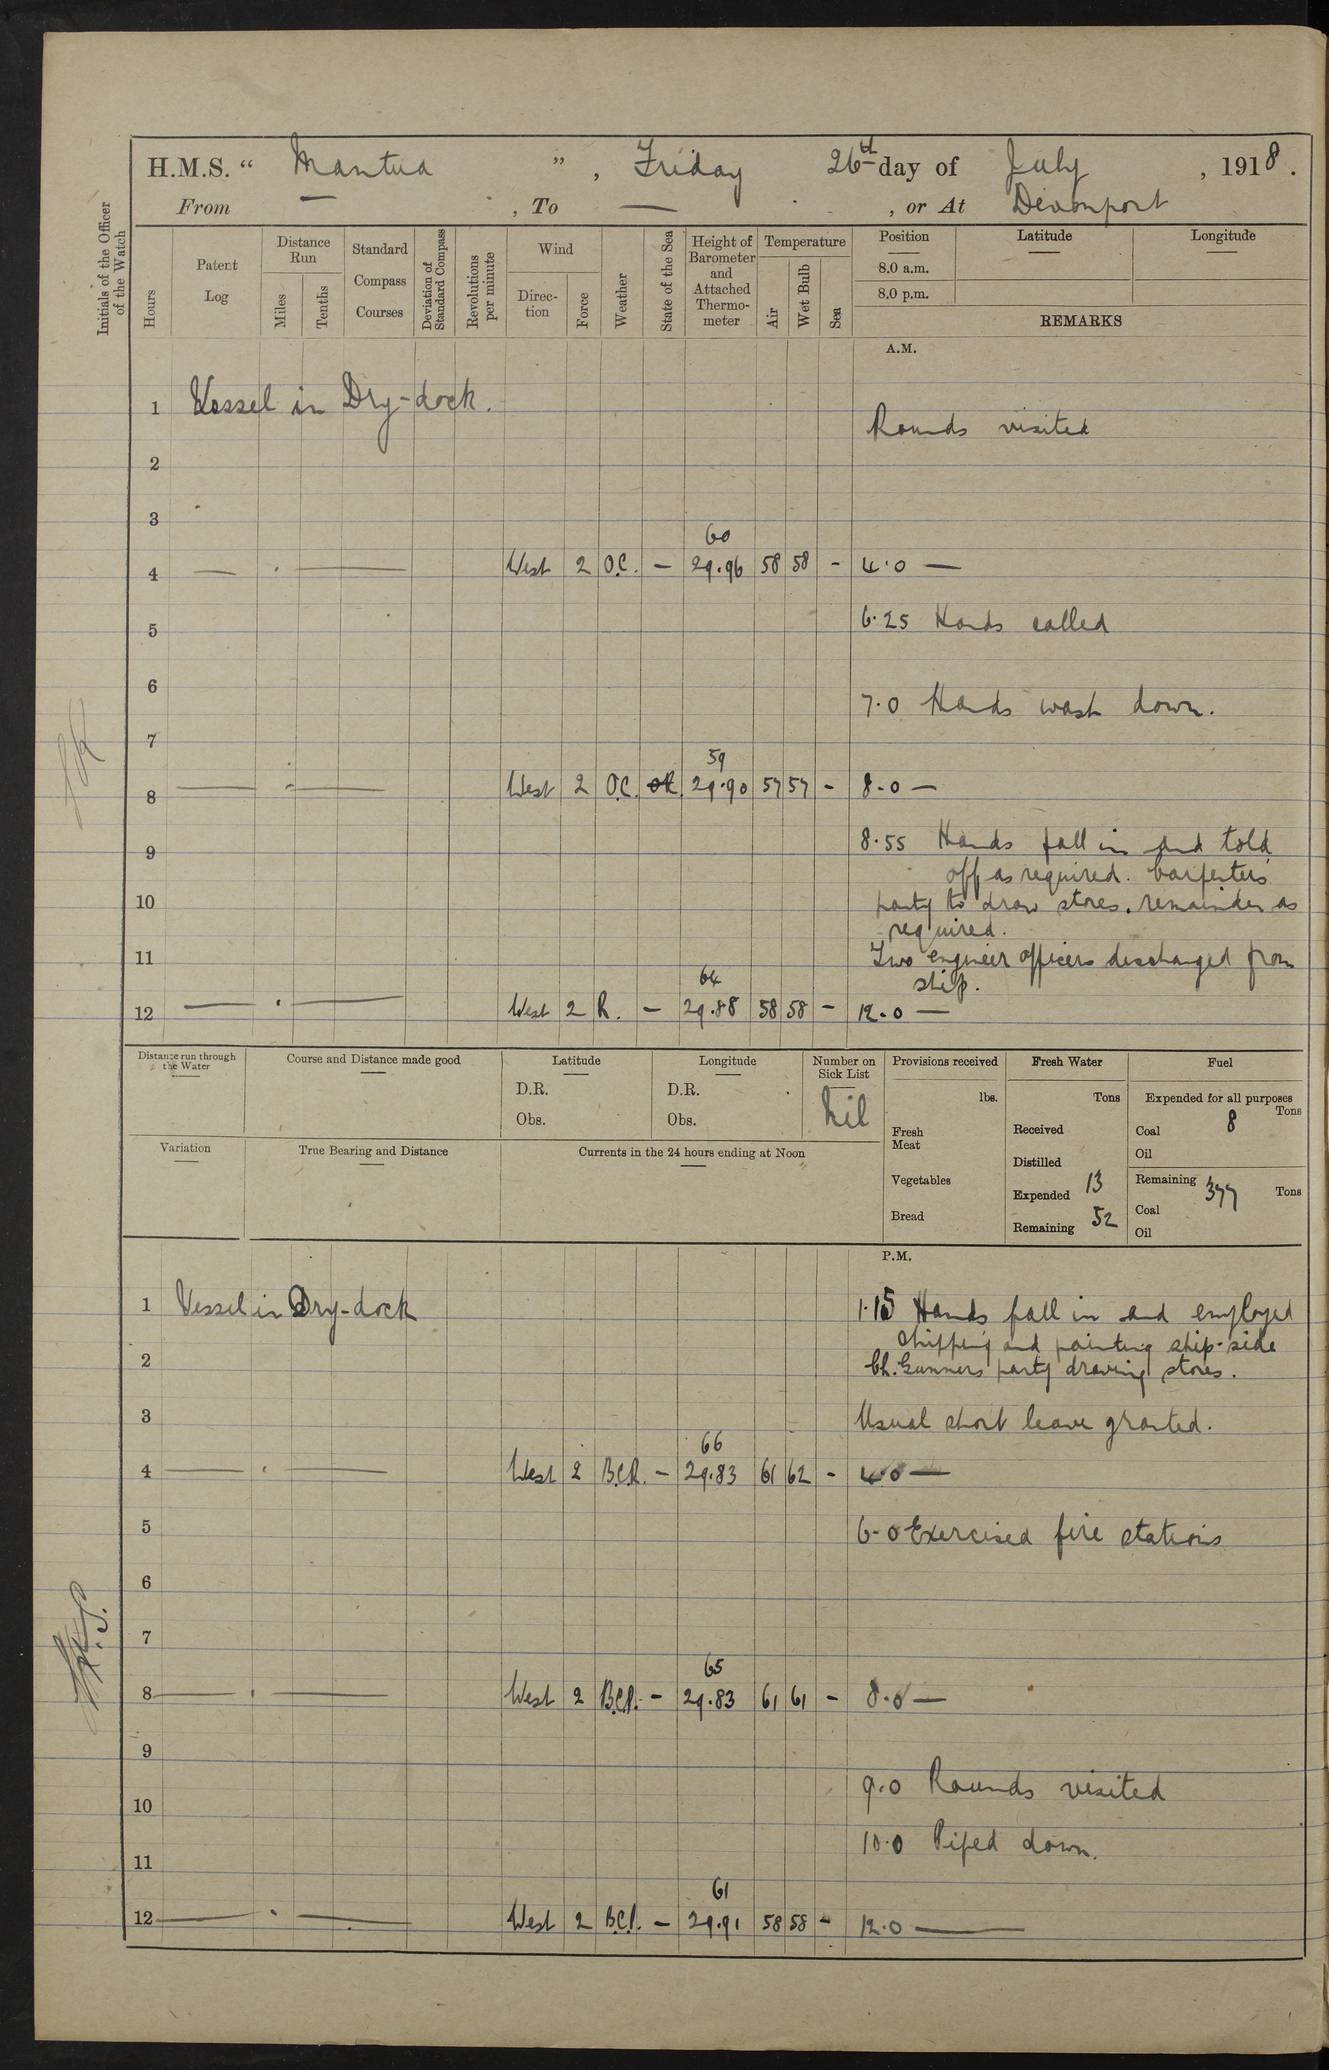 H.M.S. “ Mantua ”, Friday 26th day of July, 1918.
From — , To — , or At Devonport
Initials of the Officer of the Watch
Hours
Patent Log
Distance Run
Miles
Tenths
Standard Compass Courses
Deviation of Standard Compass
Revolutions per minute
Wind
Direc-tion
Force
Weather
State of the Sea
Height of Barometer and Attached Thermo-meter
Temperature
Air
Wet Bulb
Sea
Position
8.0 a.m.
8.0 p.m.
Latitude
Longitude
REMARKS
A.M.
1 Vessel in Dry-dock.
Rounds visited
2
3
60
4 — . — West 2 O.C. — 29.96 58 58 - 4.0 —
5 6.25 Hands called
6
7.0 Hands wash down.
7
59
8 — . — West 2 O.C. 29.90 57 57 - 8.0 —
9 8.55 Hands fall in and told
off as required. Carpenters
10 party to draw stores. remainder as
required.
11 Two engineer officers discharged from
ship.
64
12 — . — West 2 R. — 29.88 58 58 - 12.0 —
Distance run through the Water
Course and Distance made good
Latitude
D.R.
Obs.
Longitude
D.R.
Obs.
Number on Sick List
Nil
Variation
True Bearing and Distance
Currents in the 24 hours ending at Noon
Provisions received
lbs.
Fresh Meat
Vegetables
Bread
Fresh Water
Tons
Received
Distilled
Expended 13
Remaining 52
Fuel
Expended for all purposes
Tons
Coal 8
Oil
Remaining 377 Tons
Coal
Oil
P.M.
1 Vessel in Dry-dock 1.15 Hands fall in and employed
chipping and painting ship-side
2 Ch. Gunners party drawing stores.
3 Usual short leave granted.
66
4 — . — West 2 B.C.R. — 29.83 61 62 - 4.0 —
5 6.0 Exercised fire stations
6
7
65
8 — . — West 2 B.C.P. — 29.83 61 61 - 8.0 —
9
9.0 Rounds visited
10
10.0 Piped down.
11
61
12 — . — West 2 B.C.P. — 29.91 58 58 - 12.0 —